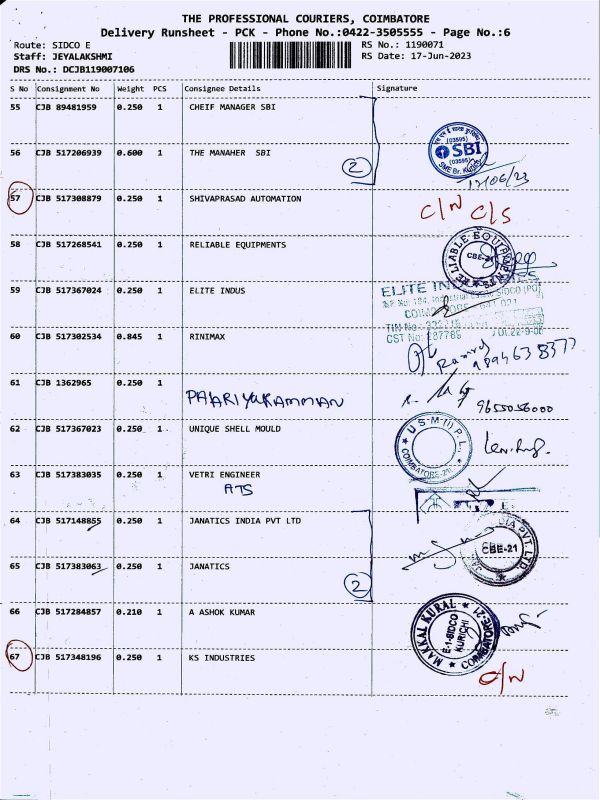 THE PROFESSIONAL COURIERS, COIMBATORE
Delivery Runsheet - PCK - Phone No.:0422-3505555 - Page No.:6
Route: SIDCO E
RS No.: 1190071
Staff: JEYALAKSHMI
RS Date: 17-Jun-2023
DRS No.: DCJB119007106
S No Consignment No Weight PCS Consignee Details Signature
55 CJB 89481959 0.250 1 CHEIF MANAGER SBI
56 CJB 517206939 0.600 1 THE MANAHER SBI
2
(03595)
SBI
(03595)
SME Br.
17/06/23
57 CJB 517308879 0.250 1 SHIVAPRASAD AUTOMATION
C/N C/S
58 CJB 517268541 0.250 1 RELIABLE EQUIPMENTS
RELIABLE EQUIPMENTS
CBE-21
59 CJB 517367024 0.250 1 ELITE INDUS
ELITE
60 CJB 517302534 0.845 1 RINIMAX
9894638377
61 CJB 1362965 0.250 1
PAARIYARAMMAN
9655056000
62 CJB 517367023 0.250 1 UNIQUE SHELL MOULD
U.S.M (I) P.L.
COIMBATORE-21
63 CJB 517383035 0.250 1 VETRI ENGINEER
ATS
64 CJB 517148855 0.250 1 JANATICS INDIA PVT LTD
PVT. LTD.
CBE-21
65 CJB 517383063 0.250 1 JANATICS
2
66 CJB 517284857 0.210 1 A ASHOK KUMAR
MAKKAL KURAL
E-1-SIDCO
KURICHI
COIMBATORE-21
67 CJB 517348196 0.250 1 KS INDUSTRIES
C/N